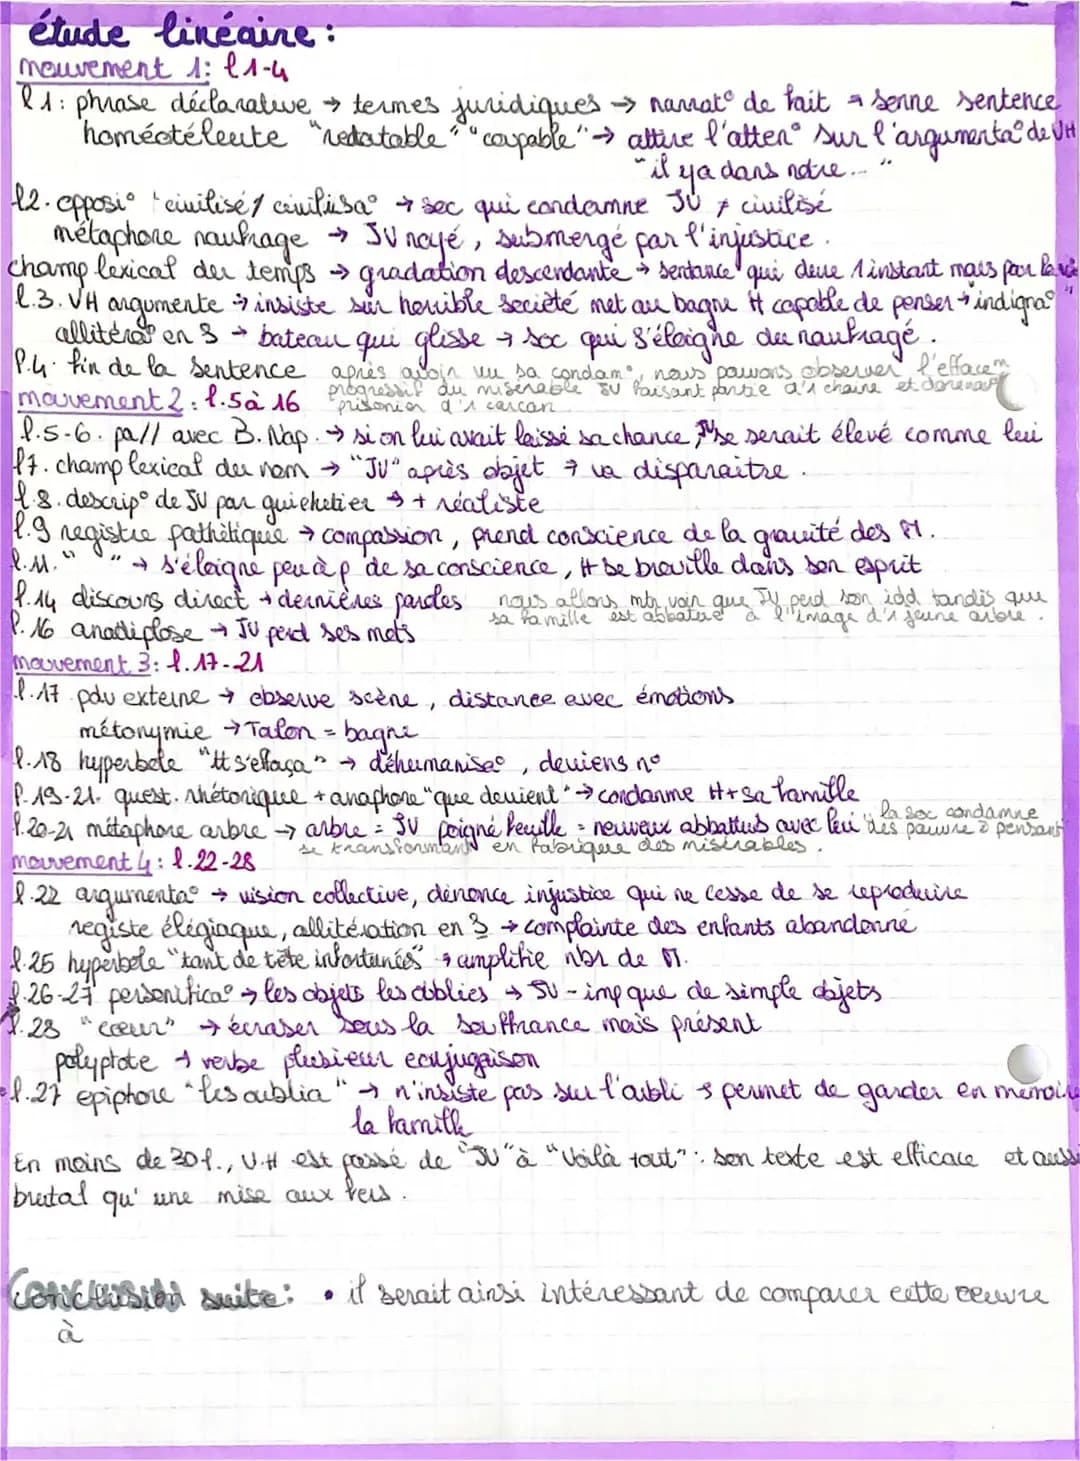 étude linéaire :
mouvement 1: l1-4
l1: phrase déclarative → termes juridiques → narrat° de fait → sonne sentence
homéotéleute "redoutable" "coupable" → attire l'atten° sur l'argumenta° de VH
"il y a dans notre... "
l2. opposi° "civilisé / civilisa° → soc qui condamne JV ≠ civilisé
métaphore naufrage → JV noyé, submergé par l'injustice.
champ lexical du temps → gradation descendante → sentance qui dure 1 instant mais pour la vie
l.3. VH argumente → insiste sur horrible société met au bagne H capable de penser → indigna°
allitéra° en S → bateau qui glisse → soc qui s'éloigne du naufragé.
l.4. fin de la sentence après avoir vu sa condam°, nous pouvons observer l'efface^m
progressif du misérable JV faisant partie d'1 chaine et dorénav^t
prisonier d'1 carcan
mouvement 2 : l.5 à 16
l.5-6. pa// avec B. Nap. → si on lui avait laissé sa chance, JV se serait élevé comme lui
l7. champ lexical du nom → "JV" après objet → va disparaitre.
l.8. descrip° de JV par guichetier → + réaliste
l.9 registre pathétique → compassion, prend conscience de la gravité des M.
l.11. " " → s'éloigne peu à p de sa conscience, H se brouille dans son esprit
l.14 discours direct → dernières paroles nous allons mtn voir que JV perd son idd tandis que
sa famille est abbatue à l'image d'1 jeune arbre.
l.16 anadiplose → JV perd ses mots
mouvement 3: l.17-21
l.17 pdv externe → observe scène, distance avec émotions
métonymie → Talon = bagne
l.18 hyperbole "tt s'effaça" → déhumanisa°, deviens n°
l.19-21. quest. rhétorique + anaphore "que devient" → condamne H + sa famille
l.20-21 métaphore arbre → arbre = JV poigné feuille = neuveux abbattus avec lui la soc condamne
des pauvre ë pensant
se transformant en fabrique des misérables.
mouvement 4 : l.22-28
l.22 argumenta° → vision collective, dénonce injustice qui ne cesse de se reproduire
registe élégiaque, allitération en S → complainte des enfants abandonné
l.25 hyperbole "tant de tête infortunés" → amplifie nbr de M.
l.26-27 personifica° → les objets les oublies → JV - imp que de simple objets
l.28 "coeur" → écraser sous la souffrance mais présent
polyptote → verbe plusieur conjugaison
l.27 épiphore "les oublia" → n'insiste pas sur l'oubli → permet de garder en mémoire
la famille
En moins de 30l., V.H est passé de "JV" à "Voilà tout" : son texte est efficace et aussi
brutal qu' une mise aux fers.
Conclusion suite: • il serait ainsi intéressant de comparer cette oeuvre
à